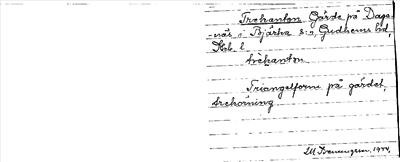 Trekanten Gärde på Dags-
-näs i Bjärka s:n, Gudhems hd,
trekanten
Triangelform på gärdet,
trehörning
1924.